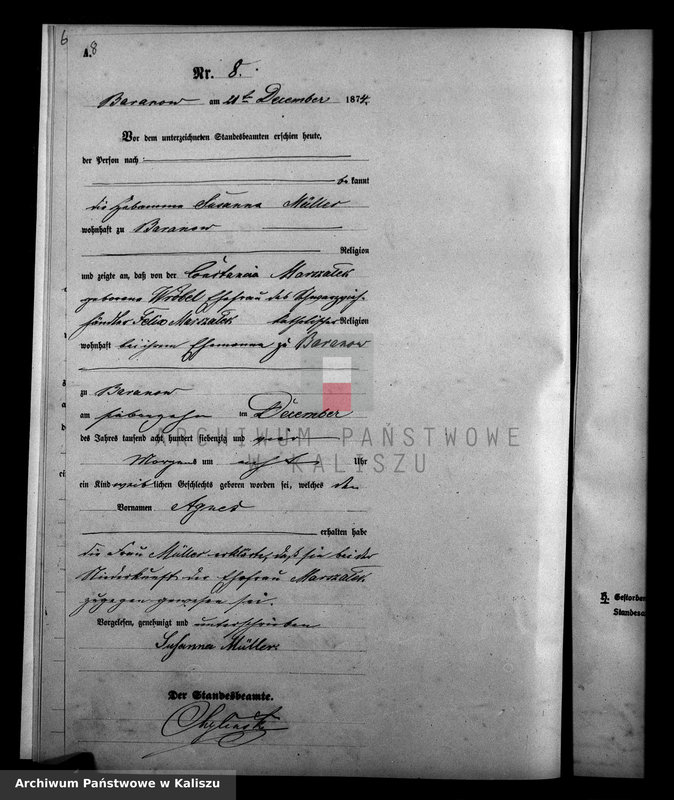 6
A. 8
Nr. 8.
Baranow am 21ten December 1874.
Vor dem unterzeichneten Standesbeamten erschien heute,
der Person nach
be kannt
die Hebamme Susanna Müller
wohnhaft zu Baranow
Religion
und zeigte an, daß von der Constancia Marszałek
geborene Wróbel Ehefrau des Schwarzvieh-
händler Felix Marszałek katholischer Religion
wohnhaft bei ihrem Ehemanne zu Baranow
zu Baranow
am siebenzehn ten December
des Jahres tausend acht hundert siebenzig und vier
Morgens um acht Uhr
ein Kind weiblichen Geschlechts geboren worden sei, welches den
Vornamen Agnes
erhalten habe
die Frau Müller erklärte, daß sie bei der
Niederkunft der Ehefrau Marszałek
zugegen gewesen sei.
Vorgelesen, genehmigt und unterschrieben
Susanna Müller
Der Standesbeamte.
ARCHIWUM PAŃSTWOWE
W KALISZU
B. Gestorben
Standesa
Archiwum Państwowe w Kaliszu